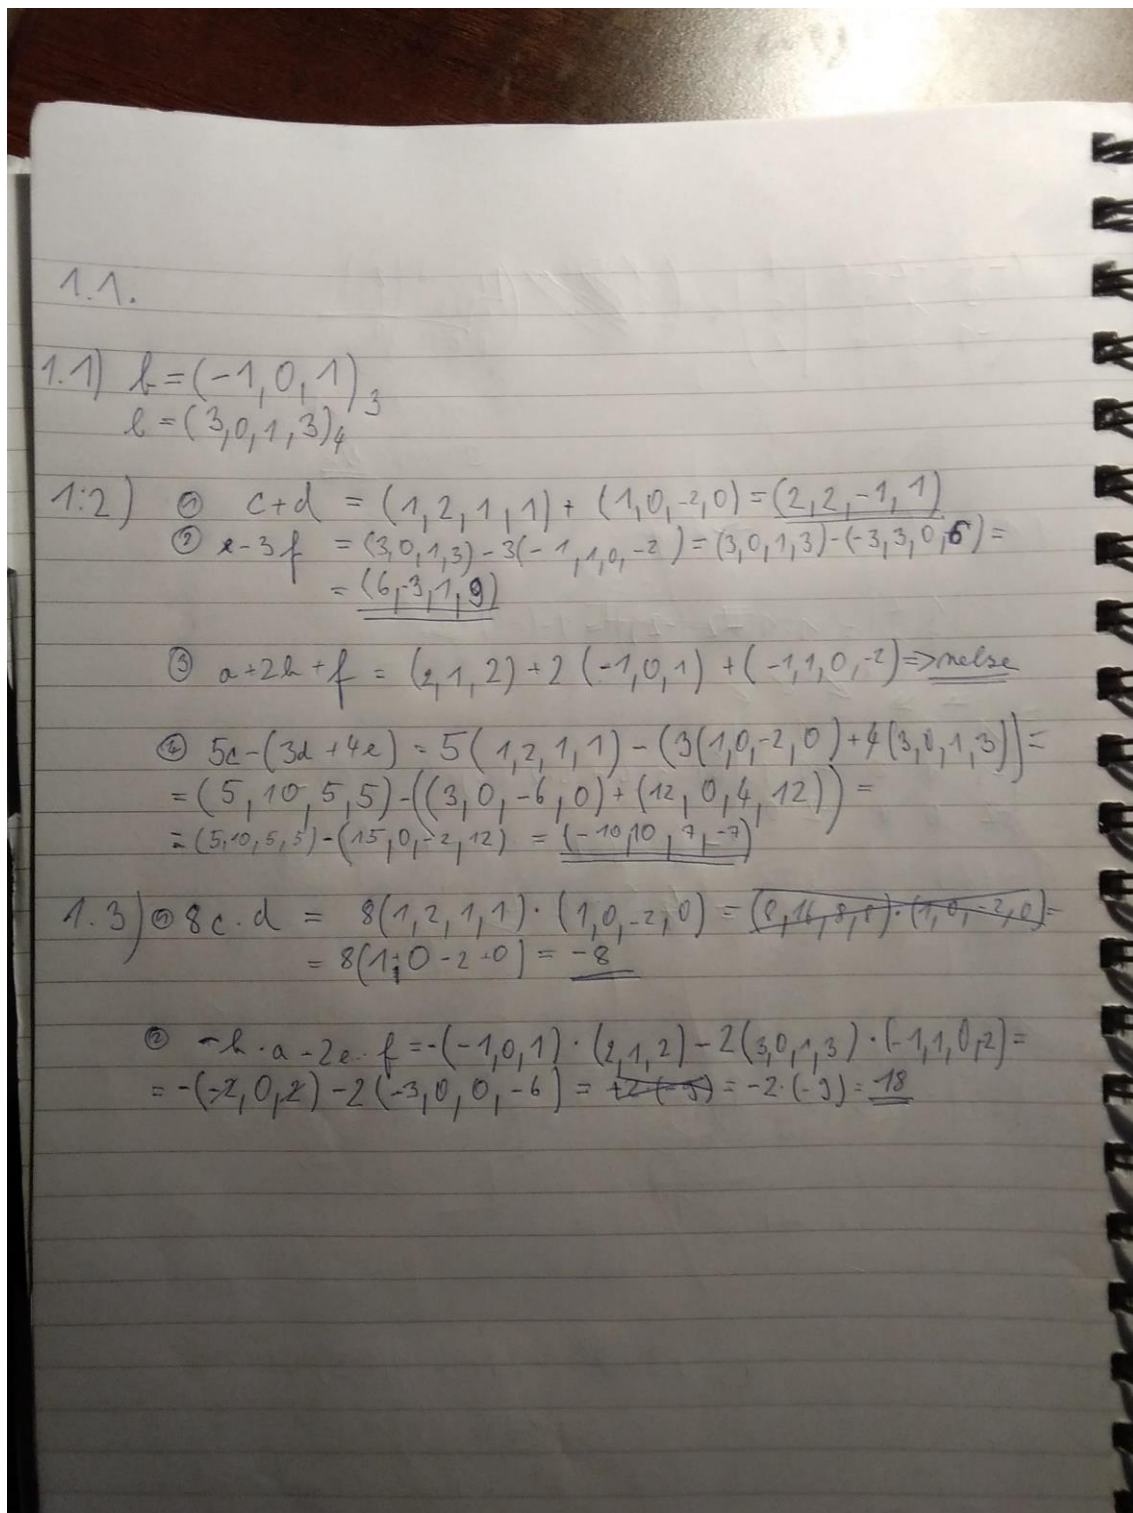 1.1.
1.1) b = (-1, 0, 1)₃
e = (3, 0, 1, 3)₄
1.2) ① c+d = (1, 2, 1, 1) + (1, 0, -2, 0) = (2, 2, -1, 1)
② e-3f = (3, 0, 1, 3) - 3(-1, 1, 0, -2) = (3, 0, 1, 3) - (-3, 3, 0, 6) =
= (6, -3, 1, 9)
③ a+2b+f = (2, 1, 2) + 2(-1, 0, 1) + (-1, 1, 0, -2) => nelze
④ 5c-(3d+4e) = 5(1, 2, 1, 1) - (3(1, 0, -2, 0) + 4(3, 0, 1, 3)) =
= (5, 10, 5, 5) - ((3, 0, -6, 0) + (12, 0, 4, 12)) =
= (5, 10, 5, 5) - (15, 0, -2, 12) = (-10, 10, 7, -7)
1.3) ① 8c·d = 8(1, 2, 1, 1) · (1, 0, -2, 0) = (8, 16, 8, 8) · (1, 0, -2, 0) =
= 8(1+0-2+0) = -8
② -b·a-2e·f = -(-1, 0, 1) · (2, 1, 2) - 2(3, 0, 1, 3) · (-1, 1, 0, 2) =
= -(-2, 0, 2) - 2(-3, 0, 0, -6) = = -2·(-9) = 18